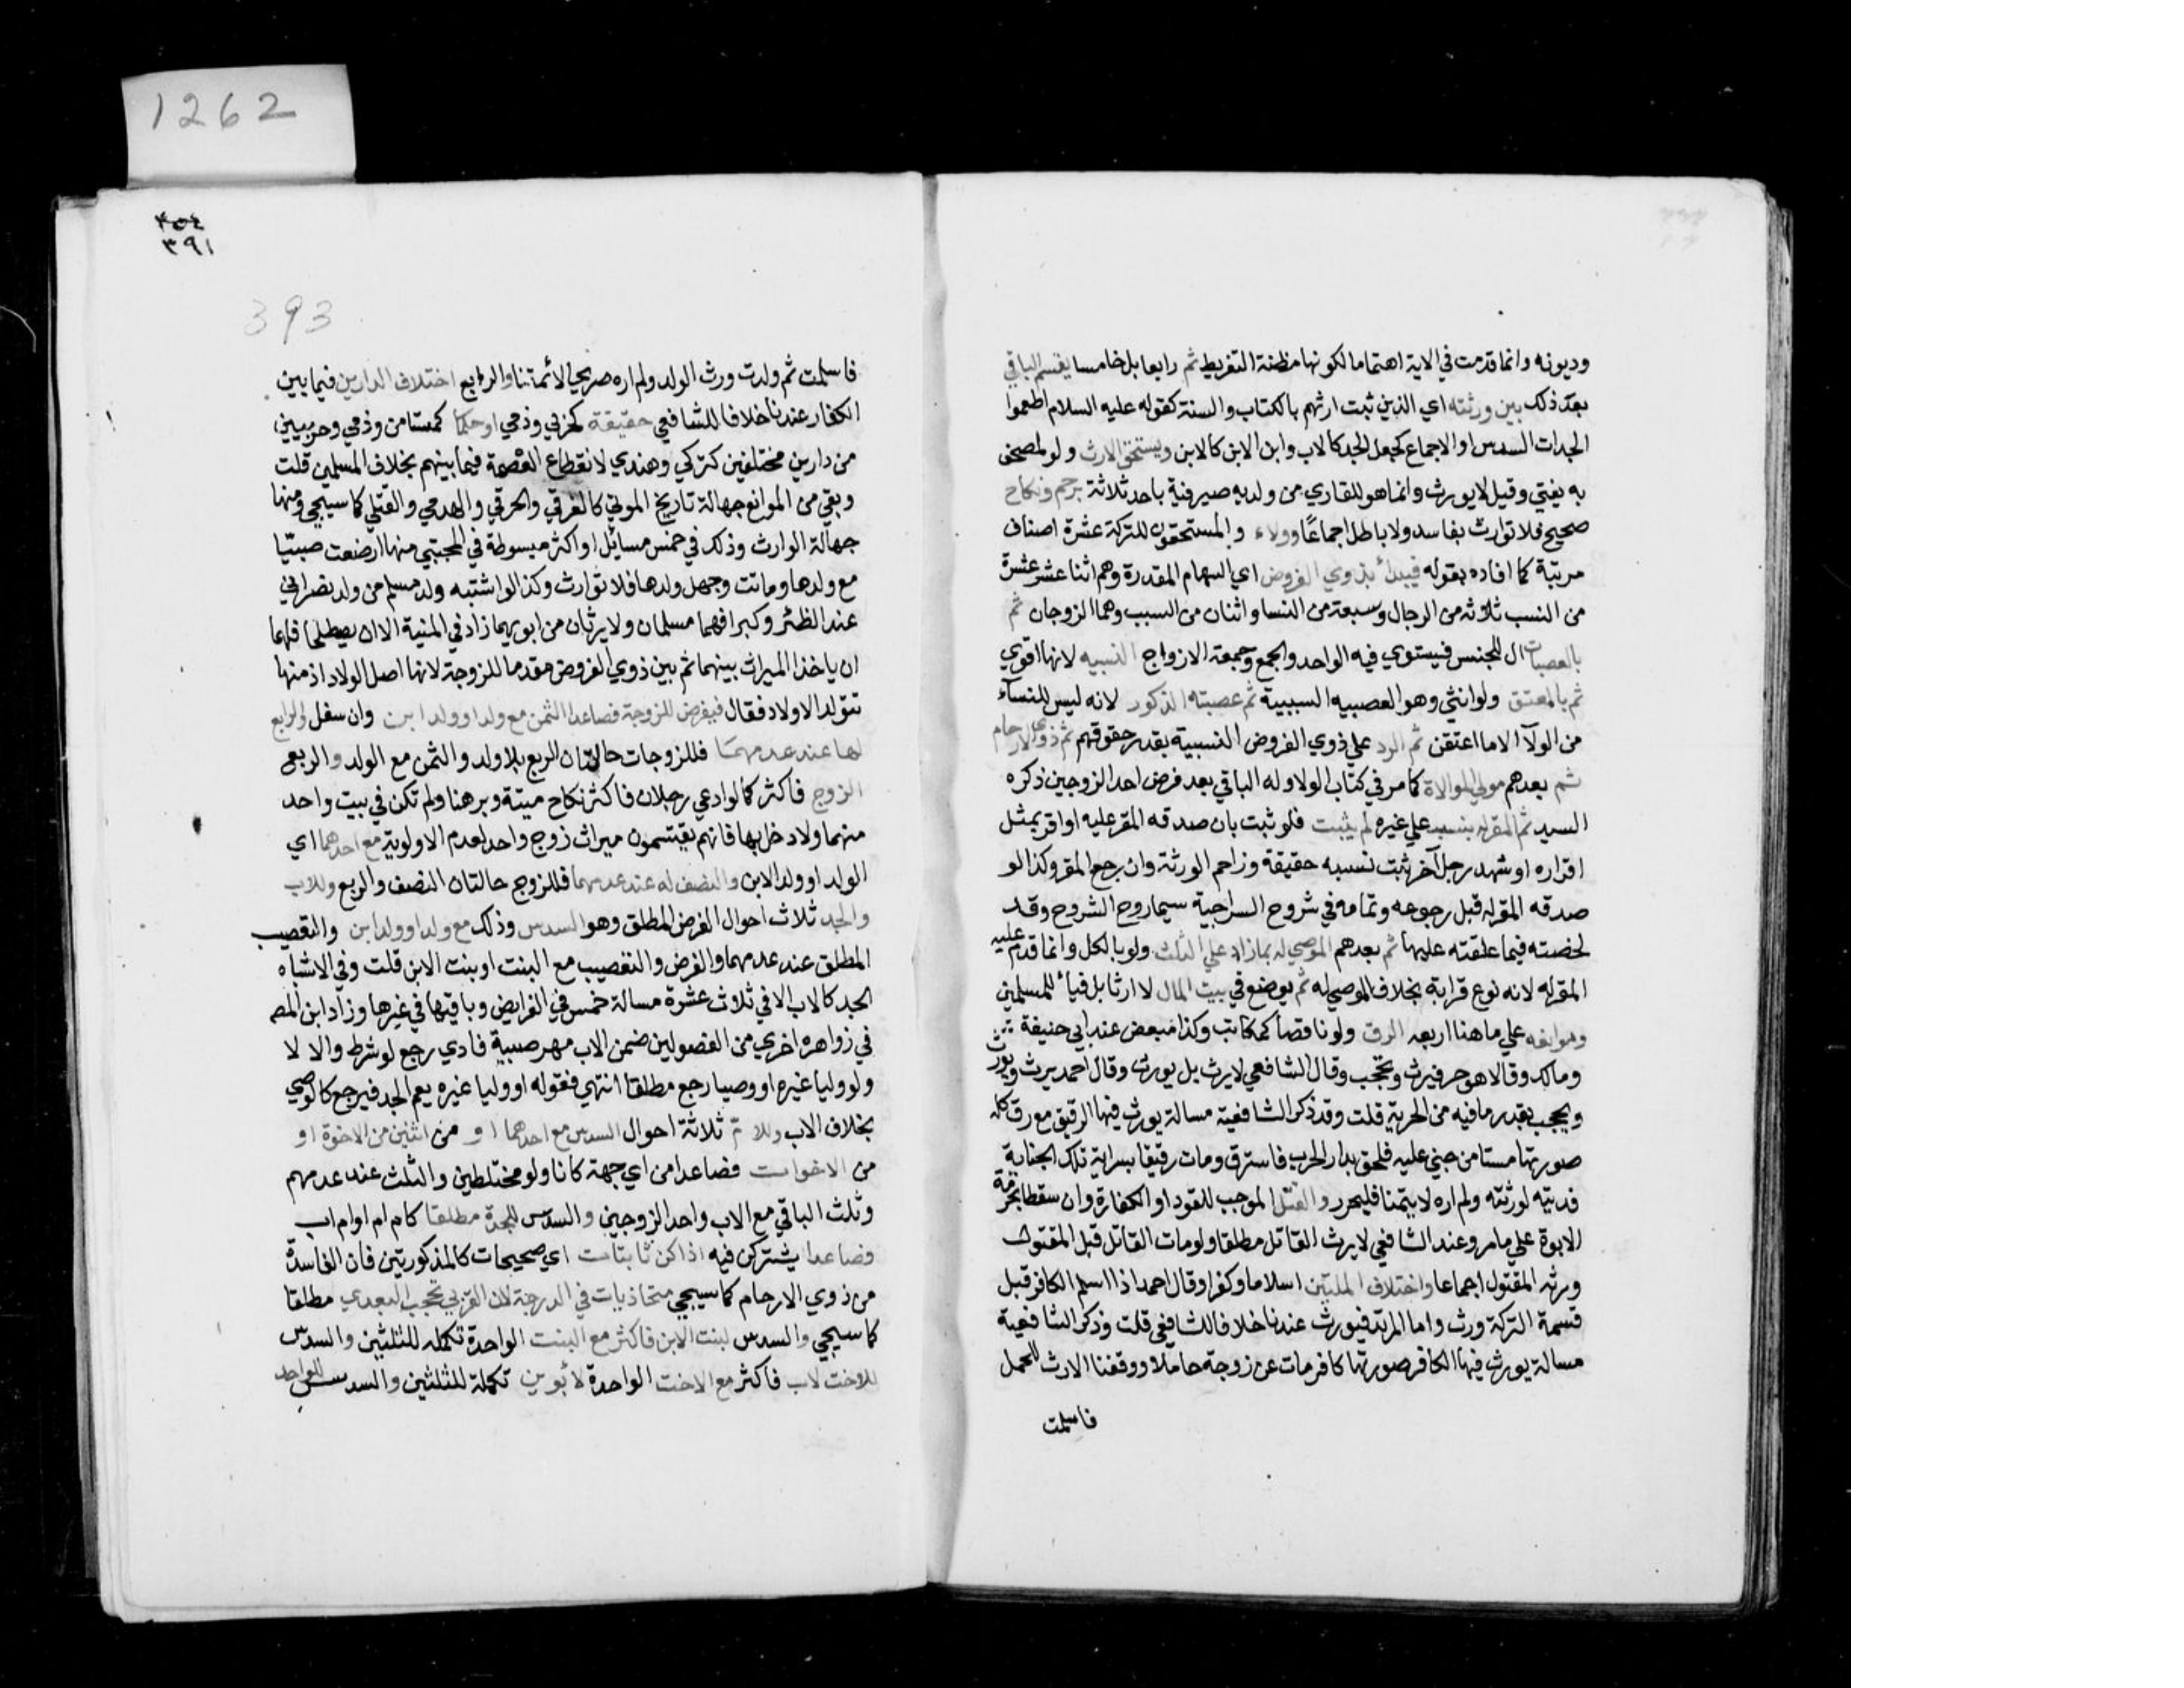 1262
وديونه وانما قدمت في الاية اهتماما لكونها مظنة التفريط ثم رابعا بل خامسا يقسم الباقي
بعد ذلك بين ورثته اي الذين ثبت ارثهم بالكتاب والسنة كقوله عليه السلام اطعموا
الجدات السدس او الاجماع كجعل الجد كالاب وابن الابن كالابن ويستحق الارث ولو لمصحف
به يفتي وقيل لا يورث وانما هو للقاري من ولديه صيرفية باحد ثلاثة برحم ونكاح
صحيح فلا توارث بفاسد ولا باطل اجماعًا وولاء والمستحقون للتركة عشرة اصناف
مرتبة كما افاده بقوله فيبدأ بذوي الفروض اي السهام المقدرة وهم اثنا عشر عشرة
من النسب ثلاثه من الرجال وسبعة من النسا واثنان من السبب وهما الزوجان ثم
بالعصبات ال للجنس فيستوي فيه الواحد والجمع وجمعه الازواج النسبيه لانها اقوي
ثم بالمعتق ولو انثي وهو العصبيه السببية ثم عصبته الذكور لانه ليس للنسآء
من الولآ الا ما اعتقن ثم الرد علي ذوي الفروض النسبية بقدر حقوقهم ثم ذوي الارحام
ثم بعدهم مولي الموالاة كما مر في كتاب الولا وله الباقي بعد فرض احد الزوجين ذكره
السيد ثم المقر له بنسب علي غيره لم يثبت فلو ثبت بان صدقه المقر عليه او اقر بمثل
اقراره او شهد رجل آخر ثبت نسبه حقيقة وزاحم الورثة وان رجع المقر وكذا لو
صدقه المقر له قبل رجوعه وتمامه في شروح السراجية سيما روح الشروح وقد
لخصته فيما علقته عليها ثم بعدهم الموصي له بما زاد علي الثلث ولو بالكل وانما قدم عليه
المقر له لانه نوع قرابة بخلاف الموصي له ثم يوضع في بيت المال لا ارثا بل فيأ للمسلمين
وموانعه علي ما هنا اربعه الرق ولو ناقصا كمكاتب وكذا مبعض عند ابي حنيفة
ومالك وقالا هو حر فيرث ويحجب وقال الشافعي لا يرث بل يورث وقال احمد يرث ويورث
ويحجب بقدر ما فيه من الحرية قلت وقد ذكر الشافعية مسالة يورث فيها الرقيق مع رق كله
صورتها مستامن جني عليه فلحق بدار الحرب فاسترق ومات رقيقا بسراية تلك الجناية
فديته لورثته ولم اره لايمتنا فليحرر والقتل الموجب للقود او الكفارة وان سقطا بحرمة
الابوة علي ما مر وعند الشافعي لا يرث القاتل مطلقا ولو مات القاتل قبل المقتول
ورثه المقتول اجماعا واختلاف الملتين اسلاما وكفرا وقال احمد اذا اسلم الكافر قبل
قسمة التركة ورث واما المرتد فيورث عندنا خلافا للشافعي قلت وذكر الشافعية
مسالة يورث فيها الكافر صورتها كافر مات عن زوجة حاملا ووقفنا الارث للحمل
فاسلمت
٤٥٤
٣٩١
393
فاسلمت ثم ولدت ورث الولد ولم اره صريحا لائمتنا والرابع اختلاف الدارين فيما بين
الكفار عندنا خلافا للشافعي حقيقة كحربي وذمي او حكما كمستامن وذمي وحربيين
من دارين مختلفين كتركي وهندي لانقطاع العصمة فيما بينهم بخلاف المسلمين قلت
وبقي من الموانع جهالة تاريخ الموتي كالغرقي والحرقي والهدمي والقتلي كما سيجي ومنها
جهالة الوارث وذلك في خمس مسائل او اكثر مبسوطة في المجتبي منها ارضعت صبيّا
مع ولدها وماتت وجهل ولدها فلا توارث وكذا لو اشتبه ولد مسلم من ولد نصراني
عند الظئر وكبرا فهما مسلمان ولا يرثان من ابويهما زاد في المنية الا ان يصطلحا فلهما
ان ياخذا الميراث بينهما ثم بين ذوي الفروض مقدما للزوجة لانها اصل الولاد اذ منها
تتولد الاولاد فقال فيفرض للزوجة فصاعدا الثمن مع ولد او ولد ابن وان سفل والربع
لها عند عدمهما فللزوجات حالتان الربع بلا ولد والثمن مع الولد والربع
الزوج فاكثر كما لو ادعي رجلان فاكثر نكاح ميتة وبرهنا ولم تكن في بيت واحد
منهما ولا دخل بها فانهم يقتسمون ميراث زوج واحد لعدم الاولوية مع احدهما اي
الولد او ولد الابن والنصف له عند عدمهما فللزوج حالتان النصف والربع وللاب
والجد ثلاث احوال الفرض المطلق وهو السدس وذلك مع ولد او ولد ابن والتعصيب
المطلق عند عدمهما والفرض والتعصيب مع البنت او بنت الابن قلت وفي الاشباه
الجد كالاب الا في ثلاث عشرة مسالة خمس في الفرايض وباقيها في غيرها وزاد ابن المص
في زواهره اخري من الفصولين ضمن الاب مهر صبية فادي رجع لو شرط والا لا
ولو وليا غيره او وصيا رجع مطلقا انتهي فقوله او وليا غيره يعم الجد فيرجع كالوصي
بخلاف الاب وللام ثلاثة احوال السدس مع احدهما او من اثنين من الاخوة او
من الاخوات فصاعدا من اي جهة كانا ولو مختلطين والثلث عند عدمهم
وثلث الباقي مع الاب واحد الزوجين والسدس للجدة مطلقا كام ام او ام اب
فصاعدا يشتركن فيه اذا كن ثابتات اي صحيحات كالمذكورتين فان الفاسدة
من ذوي الارحام كما سيجي متحاذيات في الدرجة لان القربي تحجب البعدي مطلقا
كما سيجي والسدس لبنت الابن فاكثر مع البنت الواحدة تكمله للثلثين والسدس
للاخت لاب فاكثر مع الاخت الواحدة لابوين تكملة للثلثين والسدس للواحد